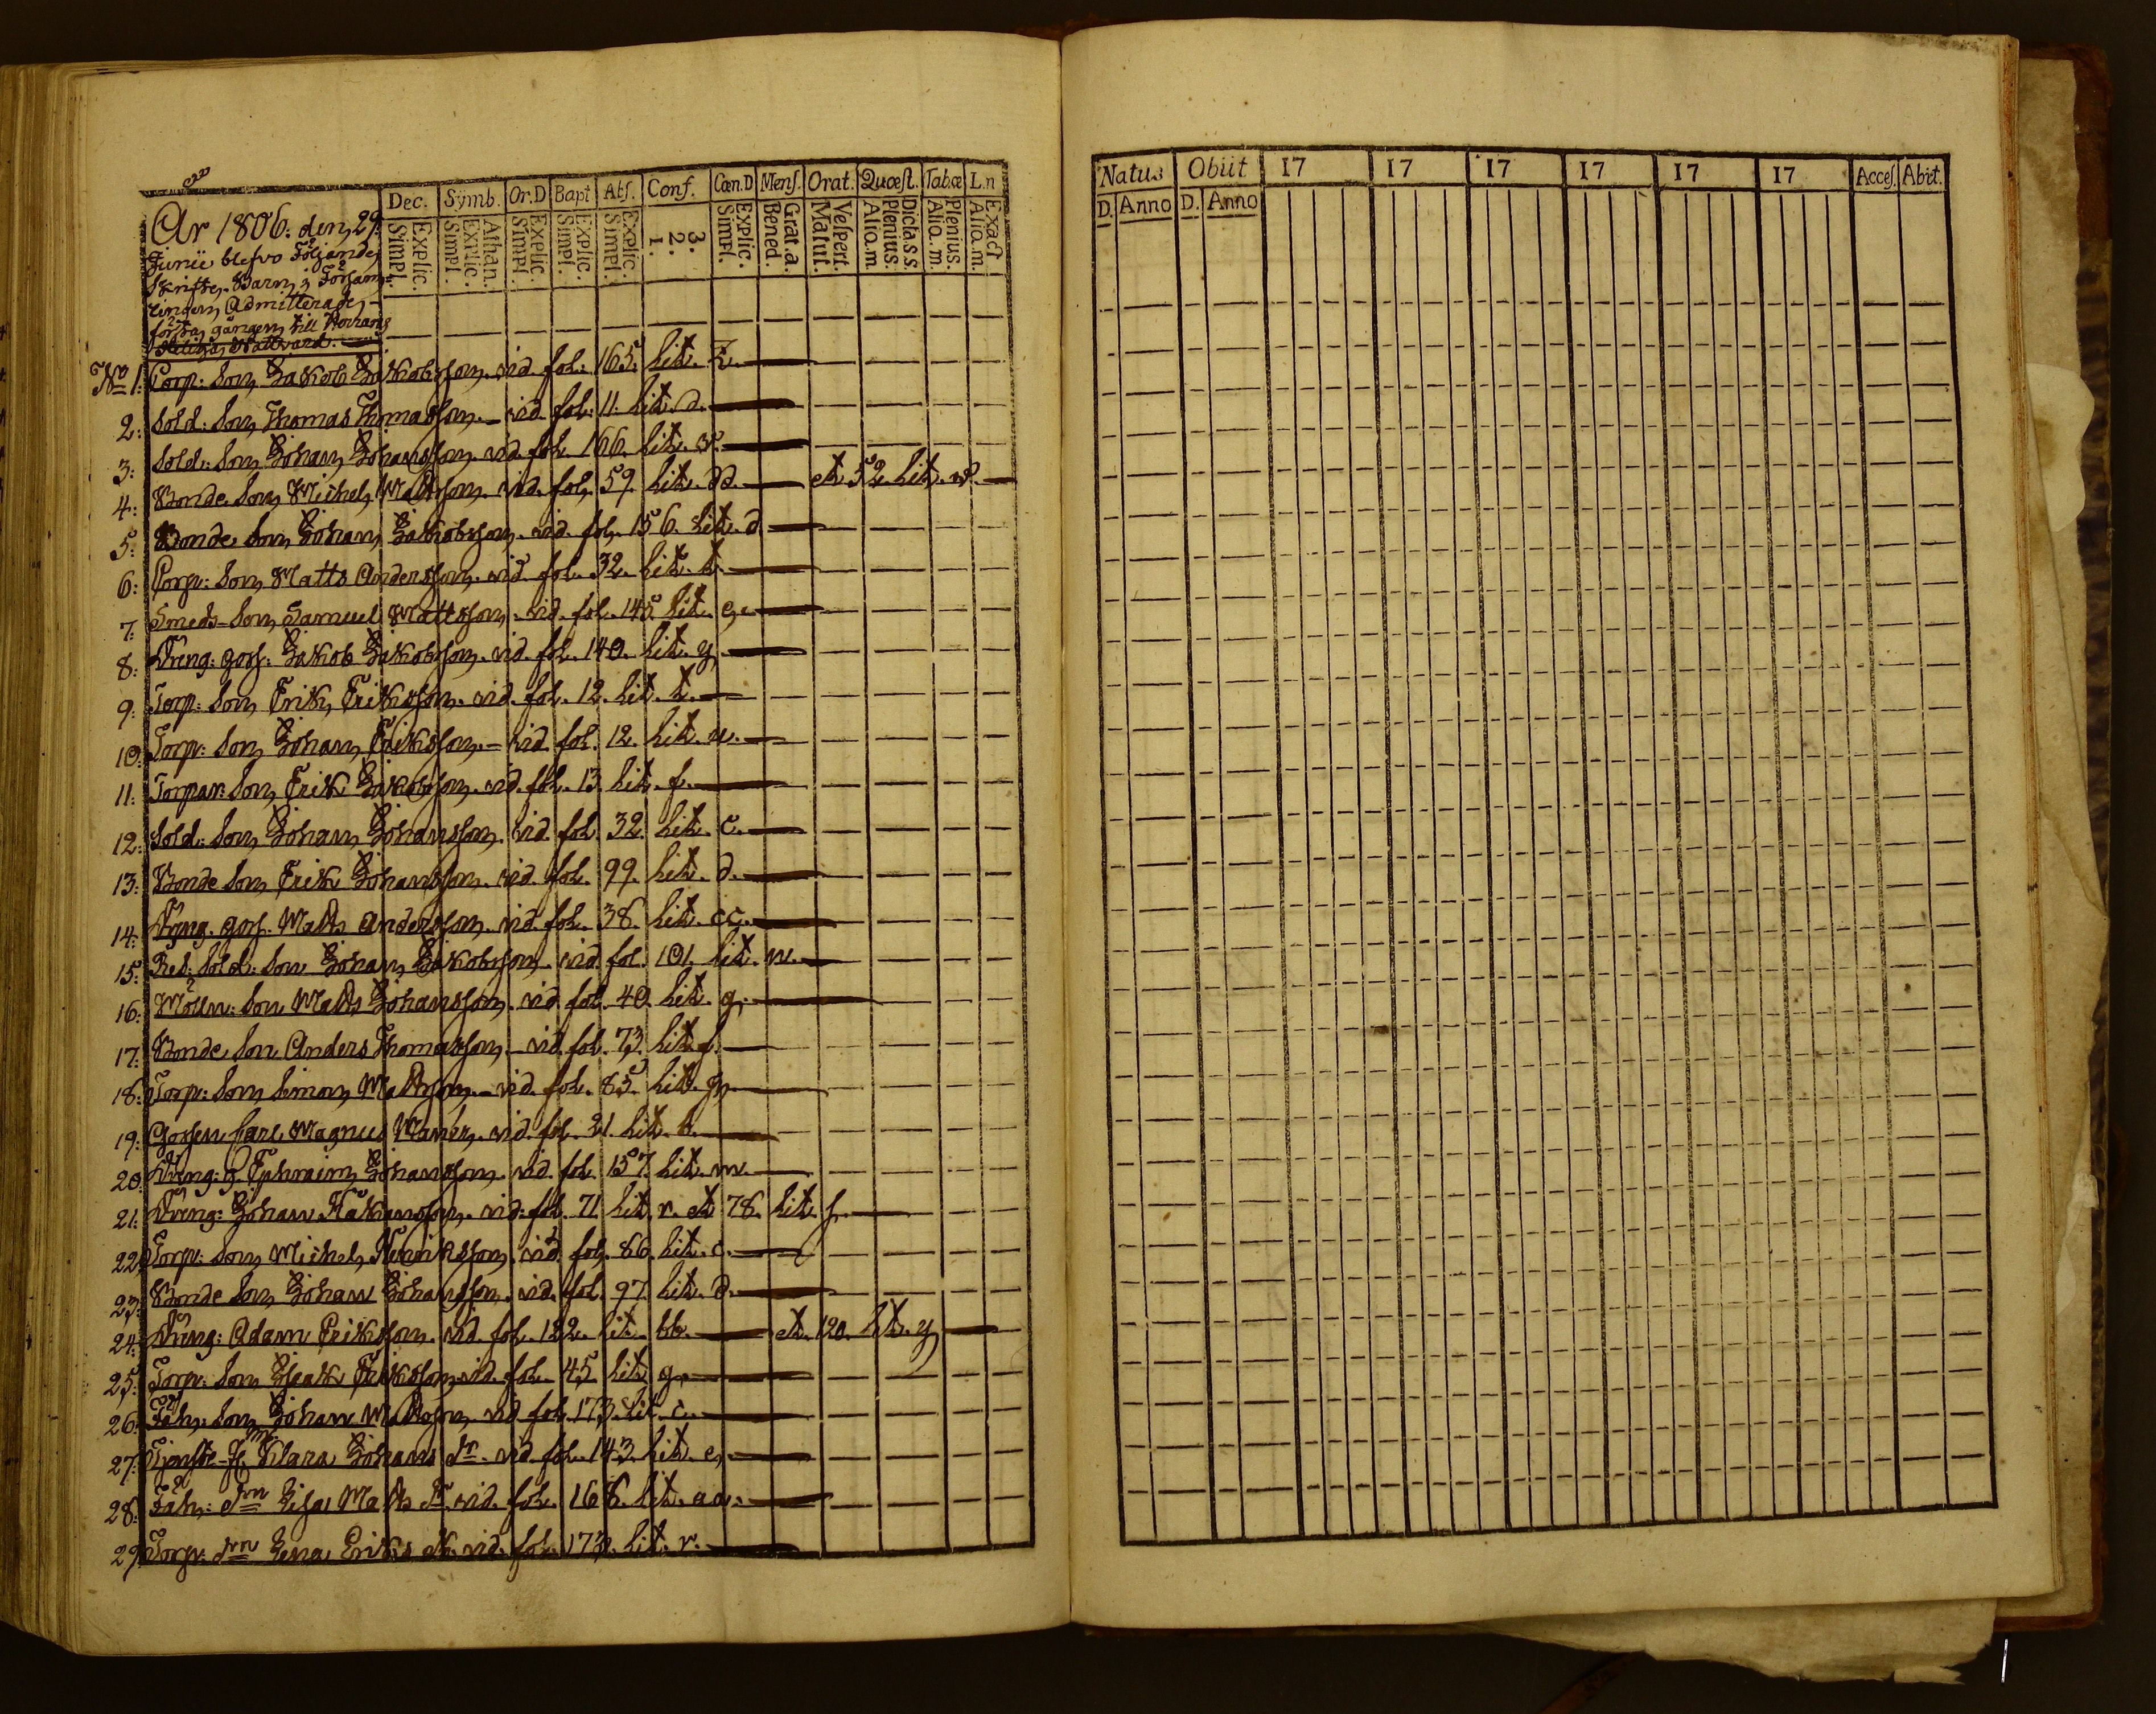 Dec. Symb. Or.D Bapt Abs. Conf. Cœn.D Mens. Orat. Quæst. Tab.œ L.n
Simpl. Explic. Simpl. Explic. Athan. Simpl. Explic. Simpl. Explic. Simpl. Explic. 1. 2. 3. Simpl. Explic. Bened. Grat.a. Matut. Vespert. Alio.m Plenius. Dicta.s.s. Alio.m. Plenius. Alio.m. Exact
År 1806. den 29.
Junii blefvo Följande
Skrifts-Barn i Församl=
lingen Admitterade
första gången till Herrans
Heliga Nattvard.
No 1: Corp: Son Jakob Jakobsson. vid. fol. 165. Lit. Z.
2: Sold: Son Thomas Thomasson. vid. fol. 11. Lit. d.
3: Sold: Son Johan Johansson. vid. fol. 166. Lit. v.
4: Bonde Son Michel Mattsson. vid. fol. 59. Lit. dd. et 52. Lit. v.
5: Bonde Son Johan Jakobsson. vid. fol. 156. Lit. d
6: Corp: Son Matts Andersson. vid. fol. 32. Lit. t.
7: Smeds-Son Samuel Mattsson. vid. fol. 145 Lit. e.
8: Dreng: goss: Jakob Jakobsson. vid. fol. 140. Lit. y.
9: Torp: Son Erik Eriksson. vid. fol. 12. Lit. t.
10: Torp: Son Johan Eriksson. vid. fol. 12. Lit. u.
11: Torpar: Son Erik Jakobsson. vid. fol. 13. Lit. f.
12: Sold: Son Johan Johansson. vid. fol. 32. Lit. c.
13: Bonde Son Erik Johansson. vid. fol. 99. Lit. d.
14: Dreng. goss. Matts Andersson. vid. fol. 38. Lit. cc.
15: Res: Sold: Son Johan Jakobsson. vid. fol. 101. Lit. n.
16: Mölln: Son Matts Johansson. vid. fol. 40. Lit. g.
17: Bonde Son Anders Thomasson. vid. fol. 73. Lit. f.
18: Torp: Son Simon Mattsson. vid. fol. 85. Lit.
19: Gossen Carl Magnus vid. fol. 21. Lit. h.
20: Dreng: g. Ephraim Johansson. vid. fol. 157. Lit. m.
21: Dreng: Johan Håkansson. vid. fol. 71. Lit. r. et 78. Lit. f.
22: Torp: Son Michel Henriksson. vid. fol. 86. Lit. c.
23: Bonde Son Johan Johansson. vid. fol. 97. Lit. d.
24: Dreng: Adam Eriksson. vid. fol. 122. Lit. bb. et. 120. Lit. y
25: Torp: Son Isak Eriksson. vid. fol. 45. Lit. g.
26: Son Johan Mattsson. vid. fol. 173. Lit. c.
27: Klara Johans dr. vid. fol. 143. Lit. e.
28: drn Lisa Matts dr. vid. fol. 168. Lit. aa.
29: Torp: drn Lena Eriks dr. vid. fol. 173. Lit. r.
Natus Obiit 17 17 17 17 17 17 Acces. Abiit.
D. Anno D. Anno